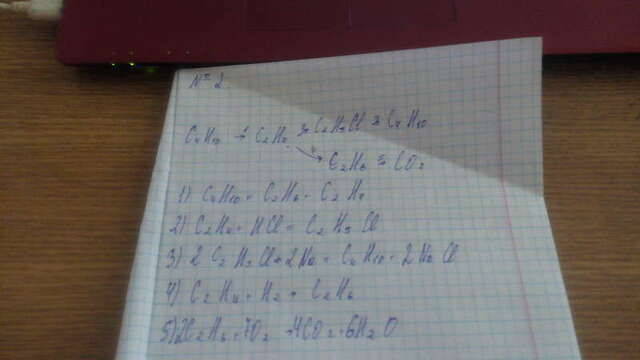 № 2
C4H10 →¹ C2H4 →² C2H5Cl →³ C4H10
→⁴ C2H6 →⁵ CO2
1) C4H10 = C2H6 + C2H4
2) C2H4 + HCl = C2H5Cl
3) 2C2H5Cl + 2Na = C4H10 + 2NaCl
4) C2H4 + H2 = C2H6
5) 2C2H6 + 7O2 → 4CO2 + 6H2O